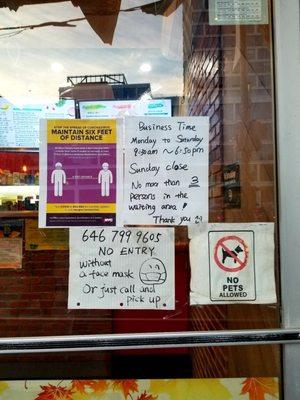 STOP THE SPREAD OF CORONAVIRUS
MAINTAIN SIX FEET
OF DISTANCE
NYC
Business Time
Monday to Saturday
8:30am ~ 6:30pm
Sunday close
No more than 3
persons in the
waiting area!
Thank you
646 799 9605
NO ENTRY
Without
a face mask
Or just call and
pick up
NO
PETS
ALLOWED